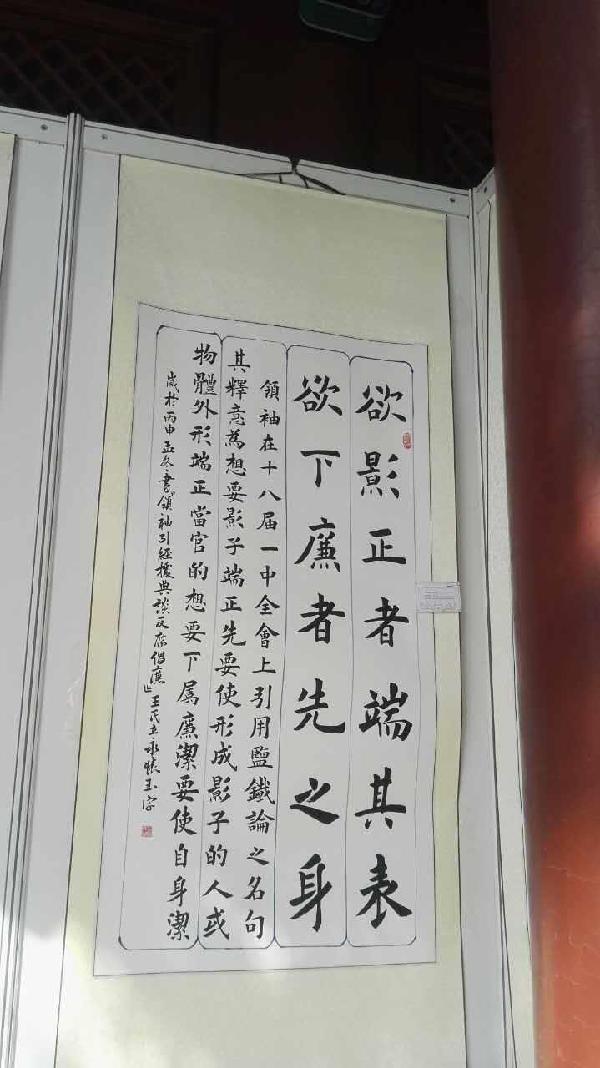 欲影正者端其表
欲下廉者先之身
領袖在十八届一中全會上引用盬鐵論之名句
其釋意為想要影子端正先要使形成影子的人或
物體外形端正當官的想要下属廉潔要使自身潔
歲於丙申孟冬書領袖引經據典談反腐倡廉王氏立永懷玉字